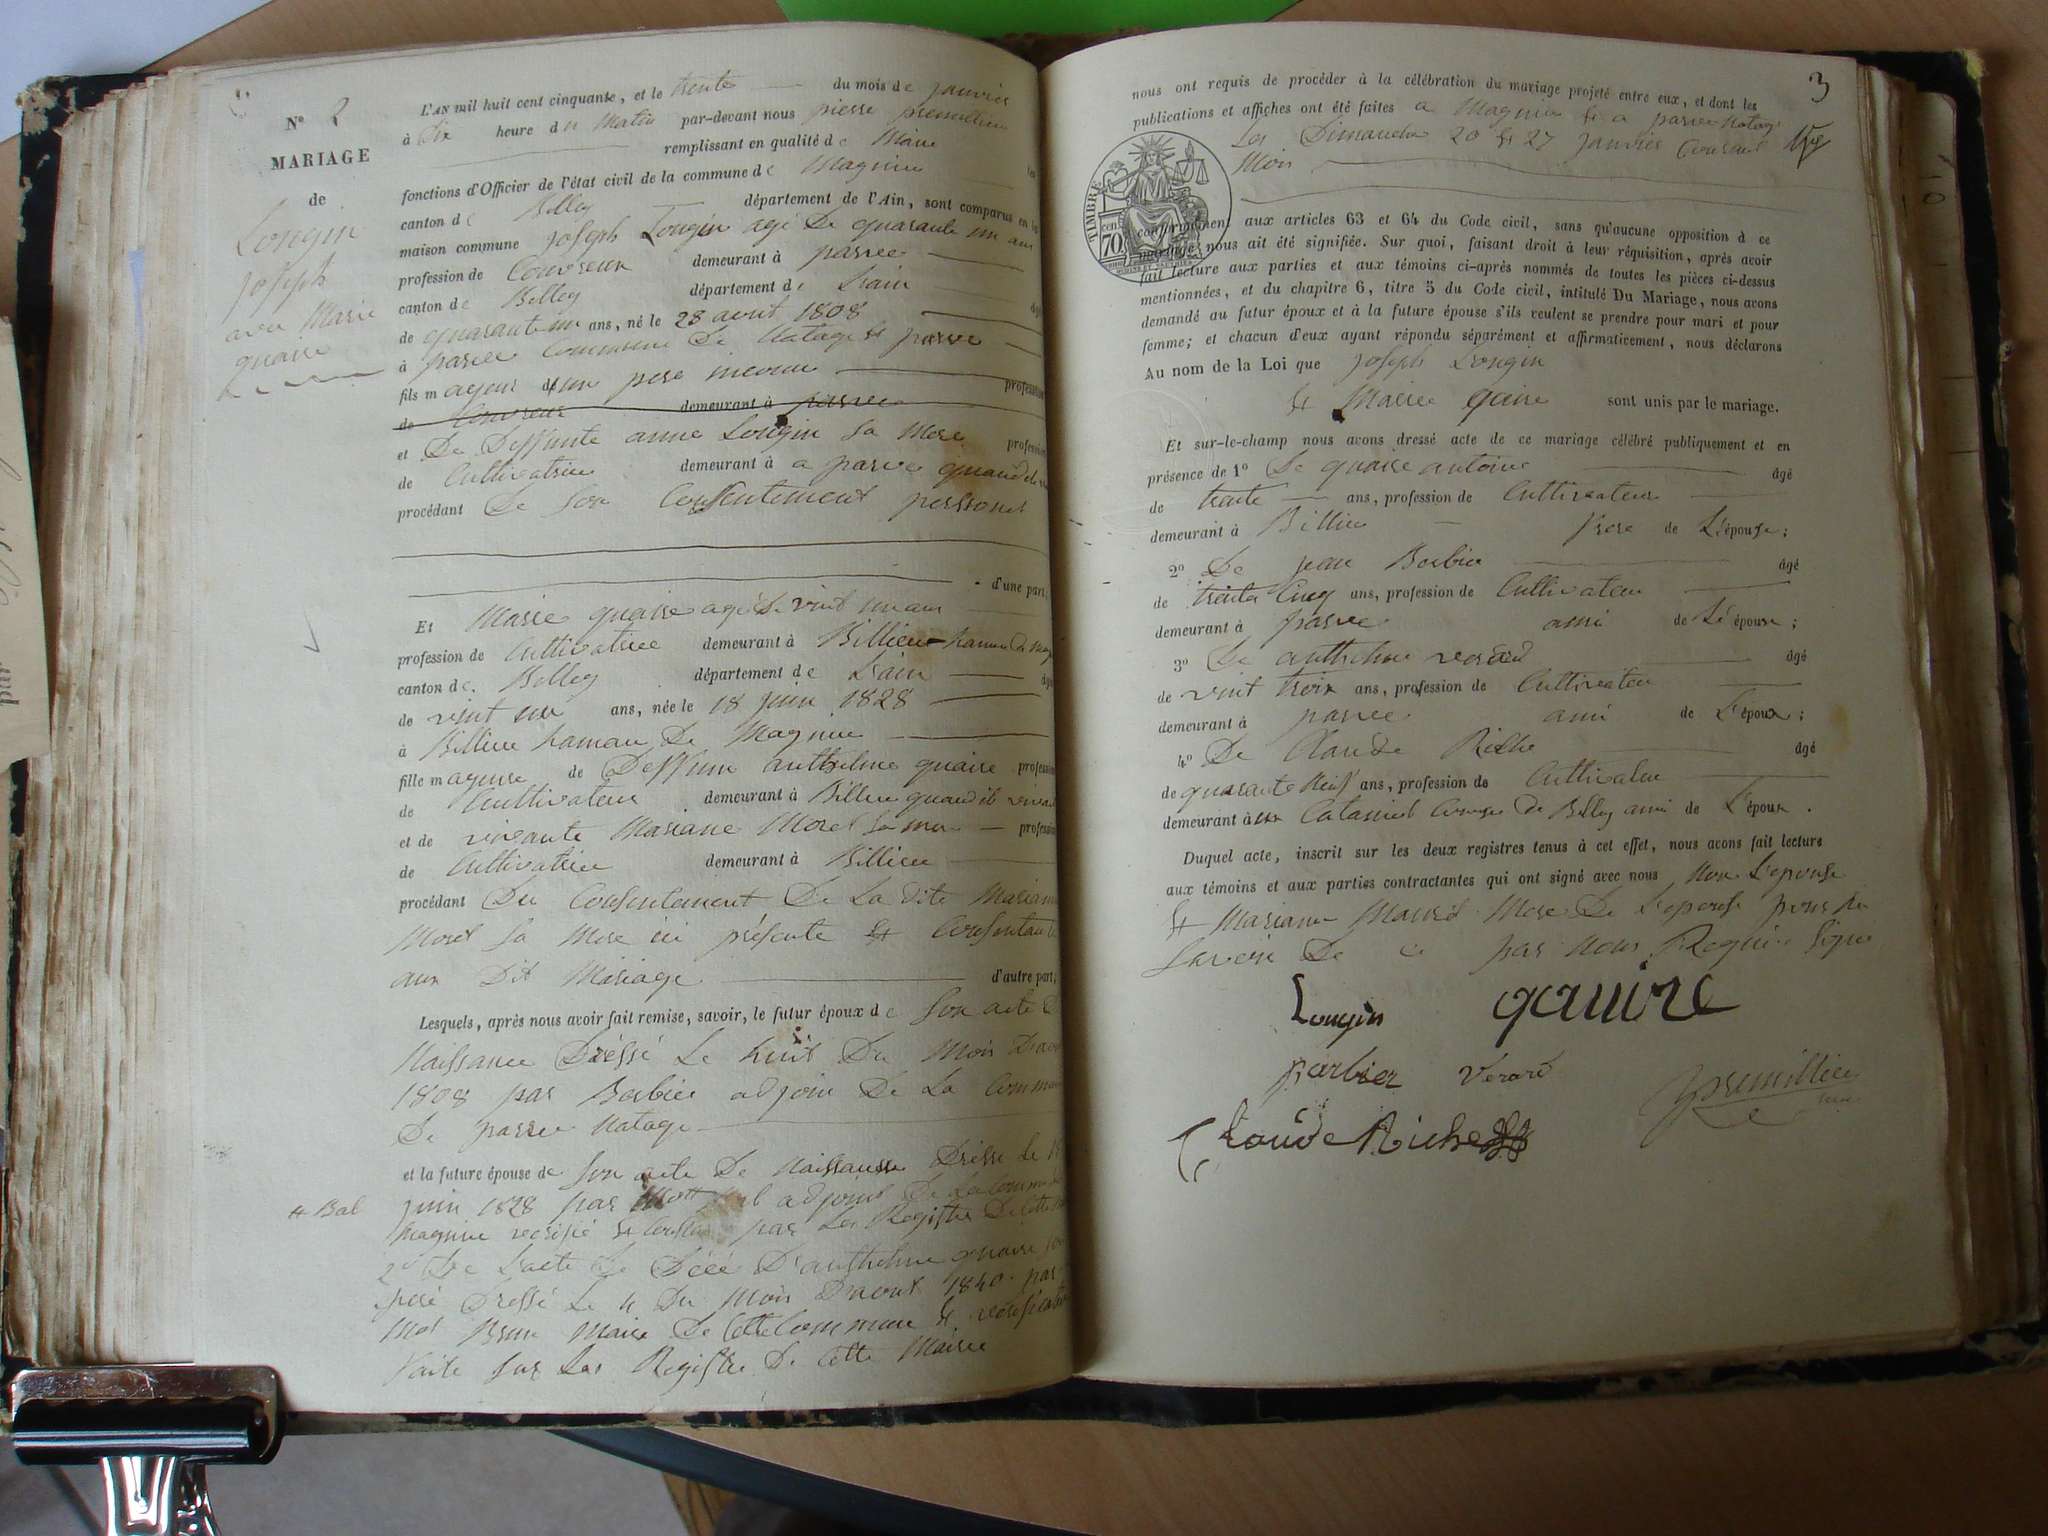 N° 2
MARIAGE
de
Longin
joseph
avec Marie
quaire
L'AN mil huit cent cinquante, et le trente du mois de janvier
à dix heure du Matin par-devant nous pierre premillieu
remplissant en qualité de Maire les
fonctions d'Officier de l'état civil de la commune de Magnieu
canton de Belley département de l'Ain, sont comparus en la
maison commune joseph Longin agé De quarante un ans
profession de Couvreur demeurant à parvee
canton de Belley département de Lain âgé
de quarante un ans, né le 28 avril 1808
à parvee Commune De Natage & parve
fils majeur d'un pere inconnu profession
de Couvreur demeurant à parvee
et De Deffunte anne Longin Sa Mere profession
de Cultivatrice demeurant à a parve quand
procédant De Son Consentement perssonel
d'une part;
Et Marie quaire agé De vint un an
profession de Cultivatrice demeurant à Billieu hamau De
canton de Belley département de Lain âgé
de vint un ans, née le 18 juin 1828
à Billieu hamau De Magnieu
fille mageure de Deffun anthelme quaire profession
de Cultivateur demeurant à Billieu quand il vivait
et de vivante Mariane Morel Sa mere profession
de Cultivatrice demeurant à Billieu
procédant Du Consentement De La dite Mariane
Morel Sa Mere ici présente & Consentante
aux Dit Mariage d'autre part;
Lesquels, après nous avoir fait remise, savoir, le futur époux de Son acte De
Naissance Dréssé Le huit Du Mois D'avril
1808 par Barbier adjoin De La Commune
De parvee Natage
et la future épouse de Son acte De Naissansse Dresse le 18
# Bal juin 1828 par adjoint De La commune
Magnieu verifié & par Les Registre De Cette
2° De L'acte De Déćé D'anthelme quaire son
peré Dressé Le 4 Du Mois D'aout 1840 par
Brun Maire De Cette Commune &
Faite Sur Les Registre De Cette Mairie
3
nous ont requis de procéder à la célébration du mariage projeté entre eux, et dont les
publications et affiches ont été faites a Magnieu & a parve Natage
Les Dimanche 20 & 27 janvier Courant
Mois
TIMBRE
70 cent
conformément aux articles 63 et 64 du Code civil, sans qu'aucune opposition à ce
mariage nous ait été signifiée. Sur quoi, faisant droit à leur réquisition, après avoir
fait lecture aux parties et aux témoins ci-après nommés de toutes les pièces ci-dessus
mentionnées, et du chapitre 6, titre 5 du Code civil, intitulé Du Mariage, nous avons
demandé au futur époux et à la future épouse s'ils veulent se prendre pour mari et pour
femme; et chacun d'eux ayant répondu séparément et affirmativement, nous déclarons
Au nom de la Loi que joseph Longin
& Mariee quaire sont unis par le mariage.
Et sur-le-champ nous avons dressé acte de ce mariage célébré publiquement et en
présence de 1° De quaire antoine âgé
de trente ans, profession de Cultivateur
demeurant à Billieu frere de L'épouse;
2° De jean Barbier âgé
de trente Cinq ans, profession de Cultivateur
demeurant à parvee ami de L'épouse;
3° De anthelme verard âgé
de vint troix ans, profession de Cultivateur
demeurant à parvee ami de L'époux;
4° De Claude Riche âgé
de quarante Neuf ans, profession de Cultivateur
demeurant à Comune De Belley ami de L'époux.
Duquel acte, inscrit sur les deux registres tenus à cet effet, nous avons fait lecture
aux témoins et aux parties contractantes qui ont signé avec nous Non L'epouse
& Mariane Mere De L'epouse pour
Savoir De ce par Nous Requi Signé
Longin quaire
Barbier Verard
Claude Riche premillieu